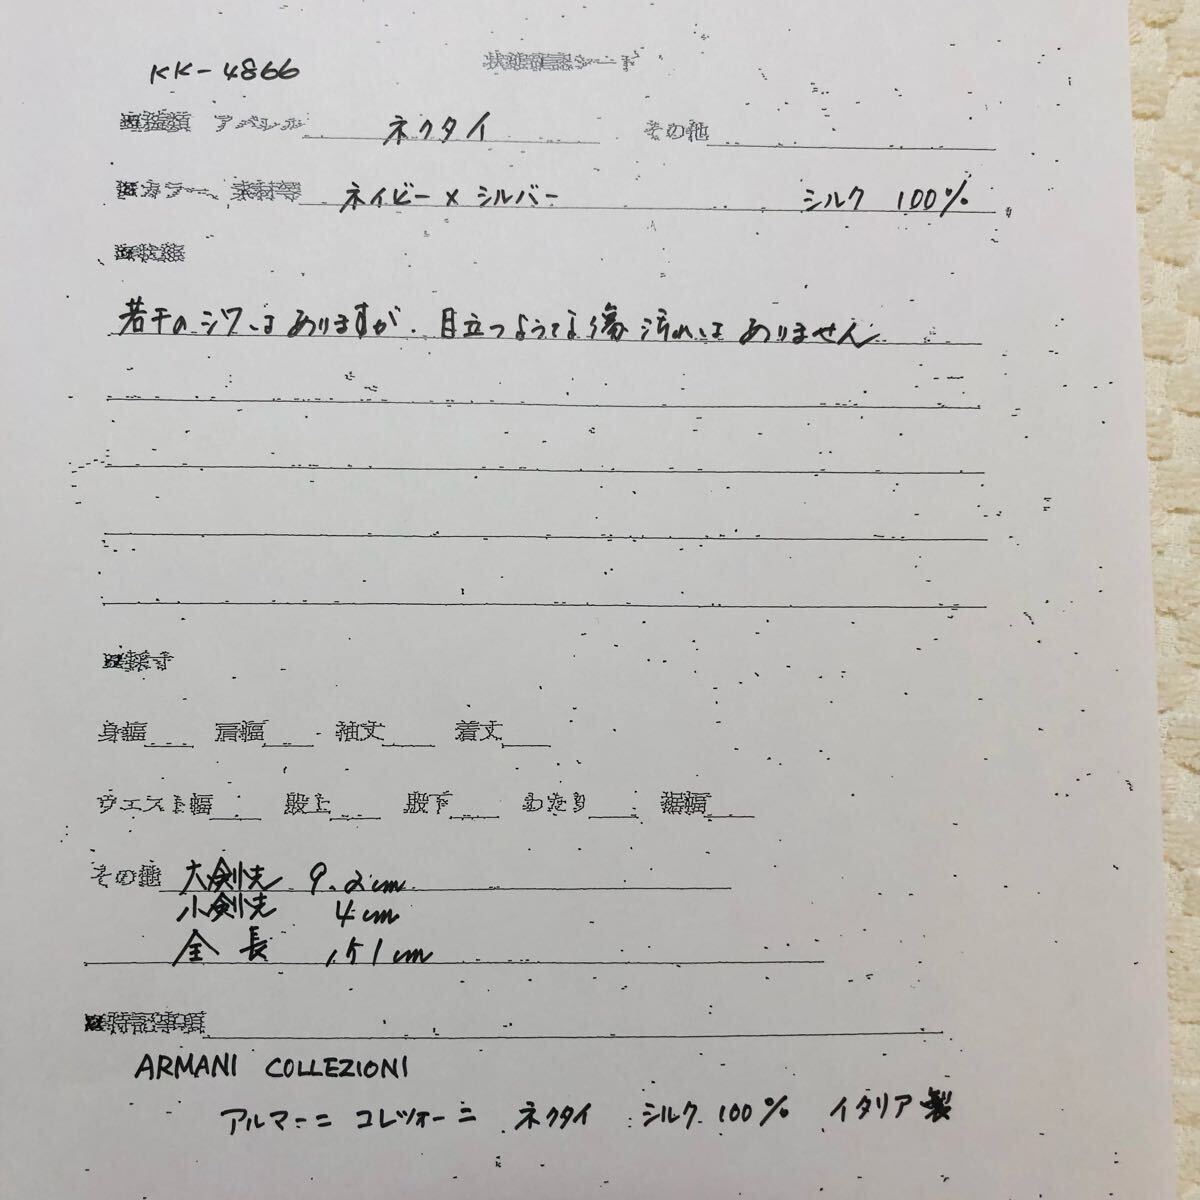 KK-4866
状態確認シート
種類 アパレル ネクタイ その他
カラー、素材等 ネイビー×シルバー シルク 100%
状態
若干のシワはありますが、目立つような傷汚れはありません
採寸
身幅 肩幅 袖丈 着丈
ウエスト幅 股上 股下 わたり 裾幅
その他 大剣先 9.2cm
小剣先 4cm
全長 151cm
特記事項
ARMANI COLLEZIONI
アルマーニ コレツォーニ ネクタイ シルク 100% イタリア製